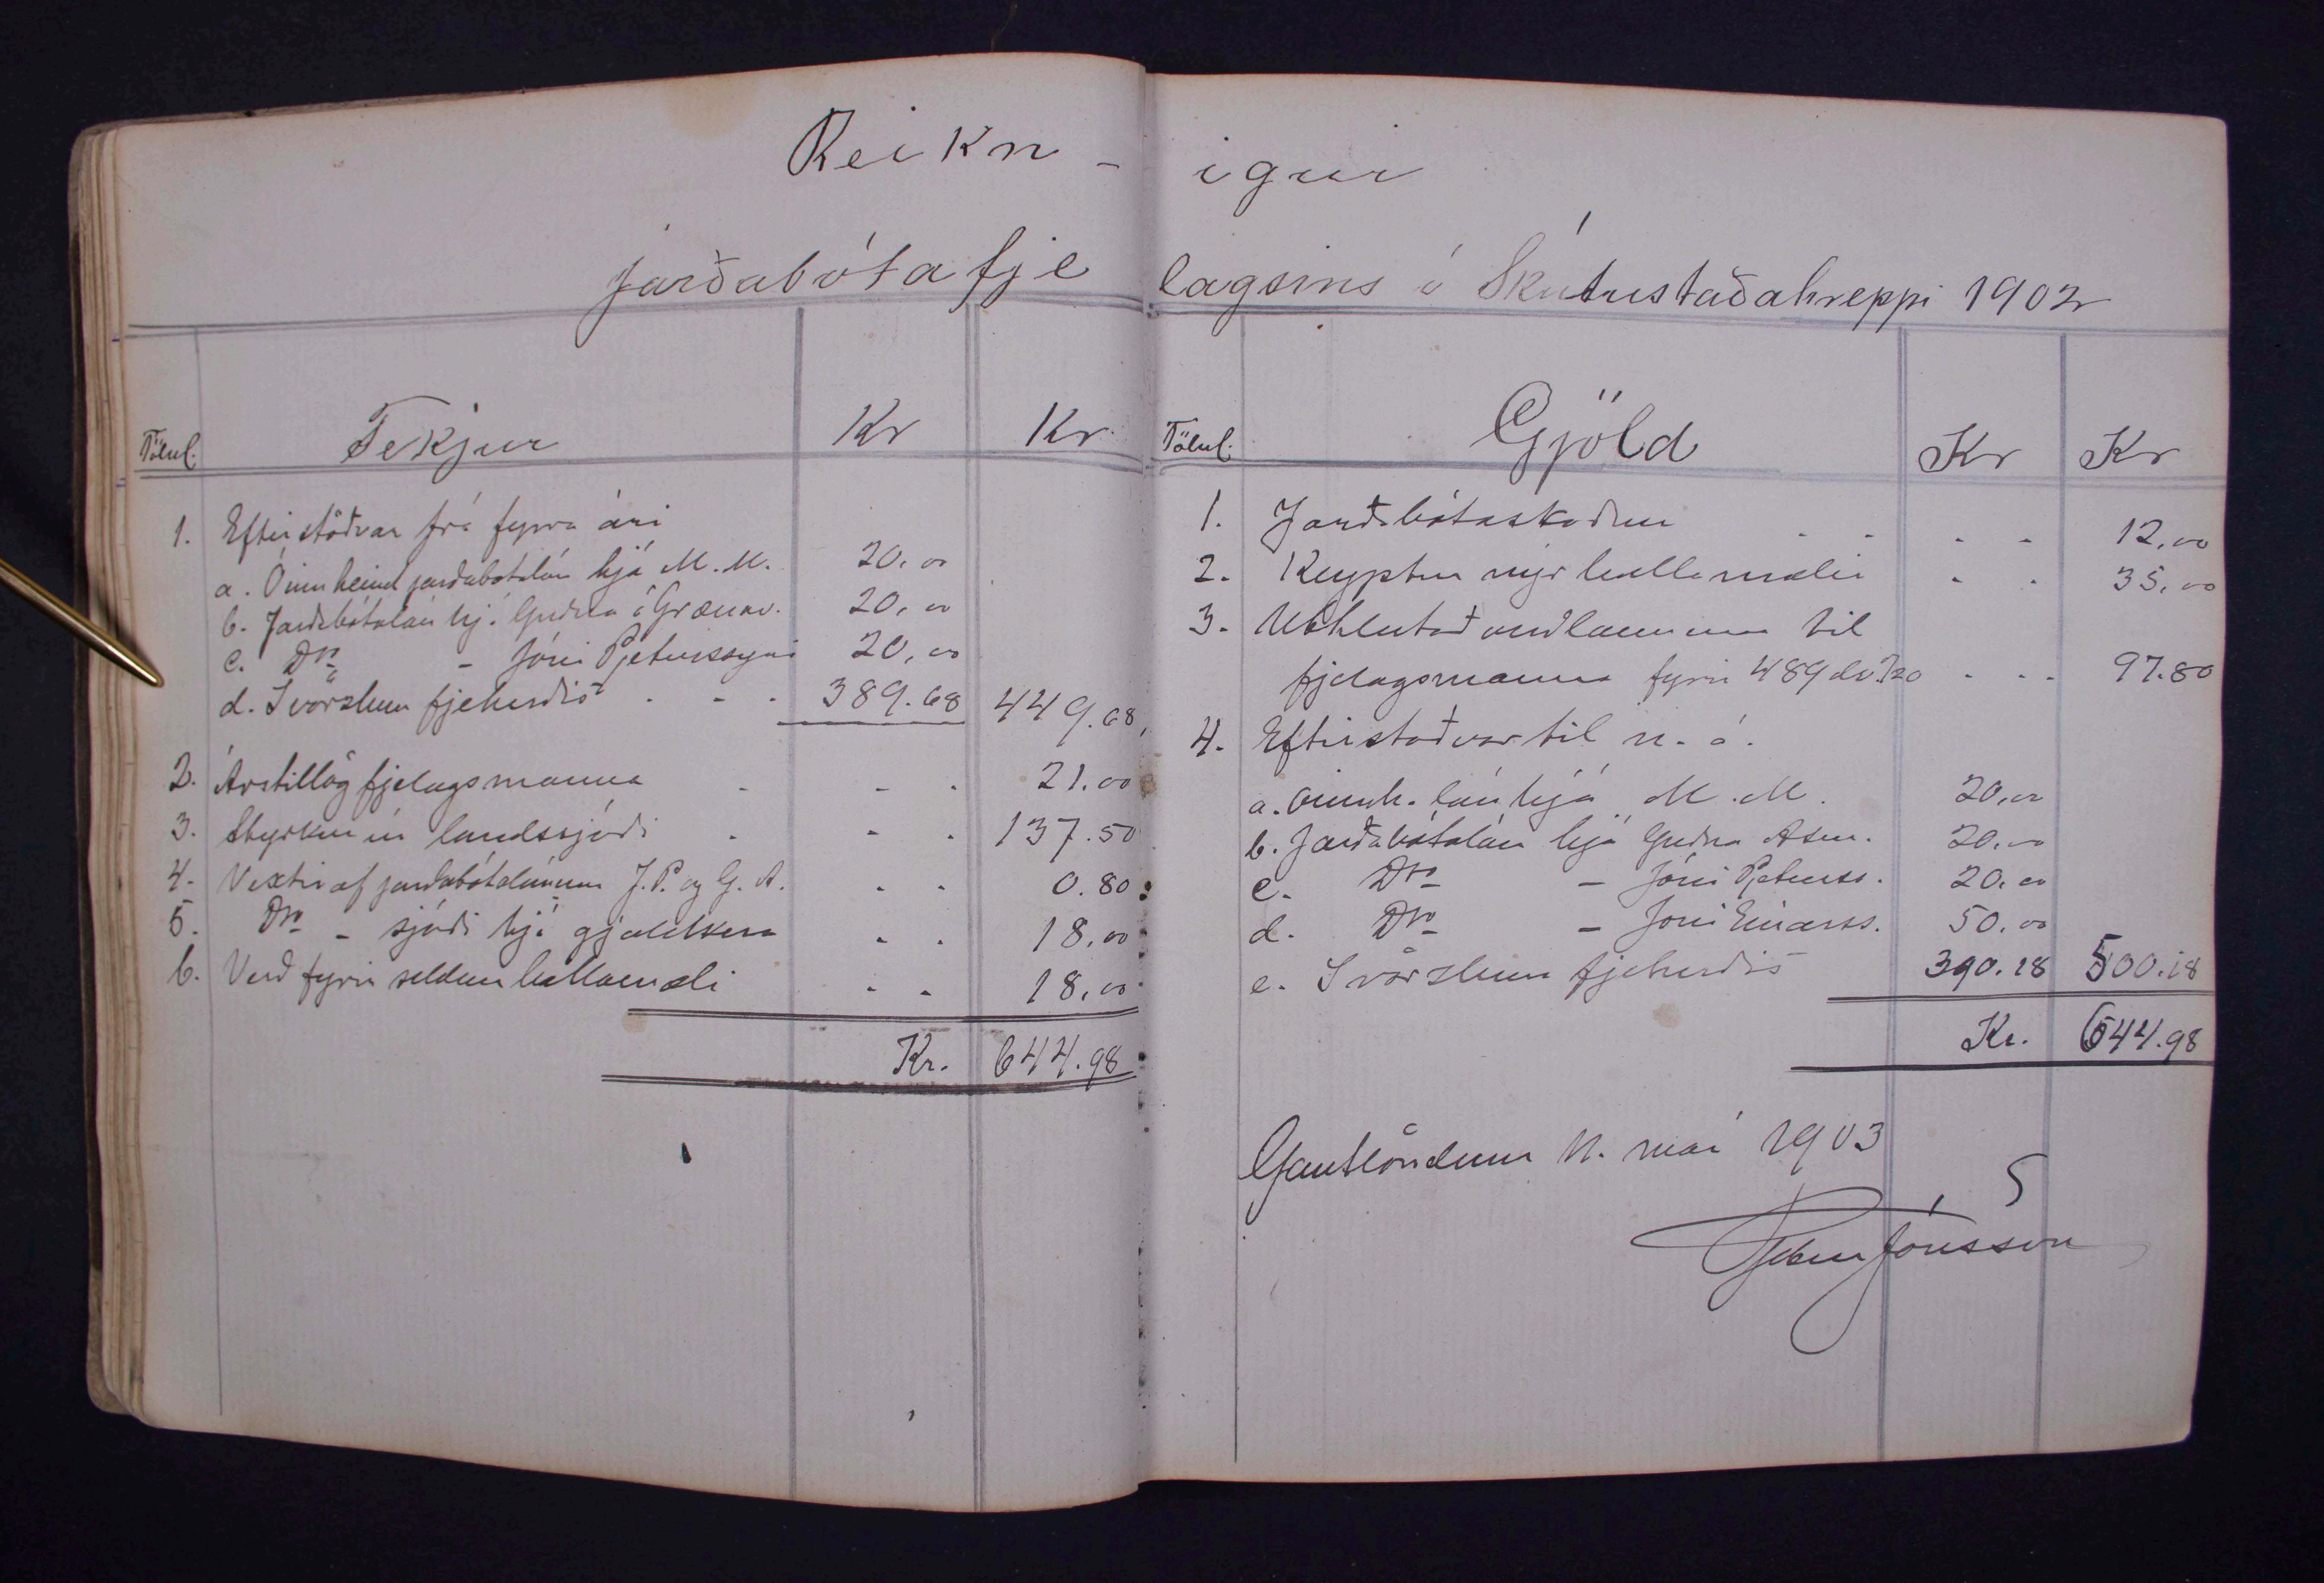 Reikn-igur
jarðabótafjelagsins í Skútustaðahreppi 1902
Tölul. Tekjur Kr Kr
1. Eftirstöðvar frá fyrra ári
a. Óinnheimt jarðabótalán hjá M. M. 20.00
b. Jarðabótalán hj. Guðna á Grænav. 20.00
c. Do - Jóni Pjeturssyni 20.00
d. Í vörzlum fjehirðis - - - 389.68 449.68
2. Árstillög fjelagsmanna - - - 21.00
3. Styrkur úr landssjóði - - - 137.50
4. Vextir af jarðabótalánum J. P. og G. A. - - 0.80
5. Do - sjóði hjá gjaldkera - - 18.00
6. Verð fyrir seldum hallamæli - - 18.00
Kr. 644.98
Tölul. Gjöld Kr Kr
1. Jarðabótaskoðun - - - - 12.00
2. Keyptur nýr hallamælir - - 35.00
3. Úthlutað verðlaunum til
fjelagsmanna fyrir 489 dv. - - - 97.80
4. Eftirstöðvar til n. á.
a. Óinnh. lán hjá M. M. 20.00
b. Jarðabótalán hjá Guðna Ásm. 20.00
c. Do - Jóni Pjeturss. 20.00
d. Do - Jóni Einarss. 50.00
e. Í vörzlum fjehirðis 390.18 500.18
Kr. 644.98
Gautlöndum 11. maí 1903
Pjetur Jónsson